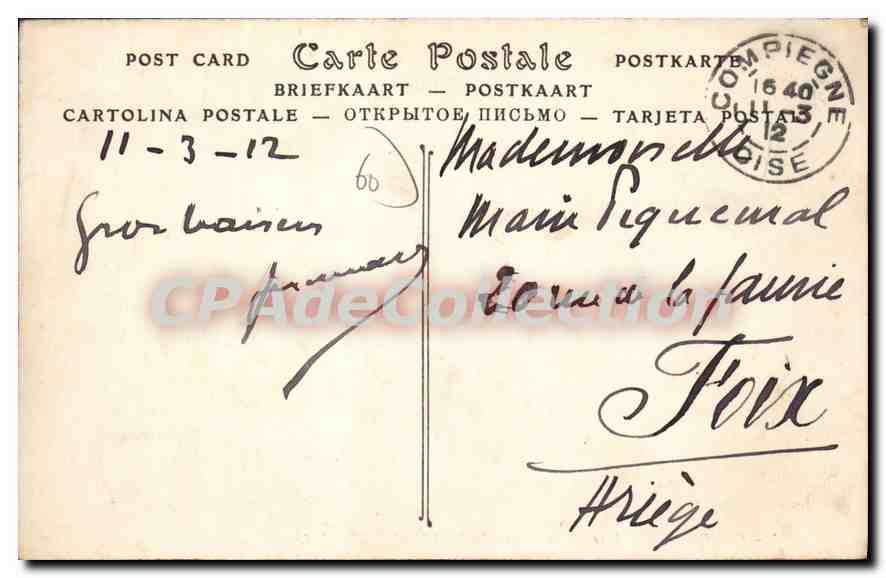 POST CARD Carte Postale POSTKARTE
BRIEFKAART — POSTKAART
CARTOLINA POSTALE — ОТКРЫТОЕ ПИСЬМО — TARJETA POSTAL
COMPIEGNE
16 40
11 - 3
12
OISE
11 - 3 - 12
60
Gros baisers
Mademoiselle
Marie Piquemal
20 rue de la faurie
Foix
Ariège
CPAdeCollection